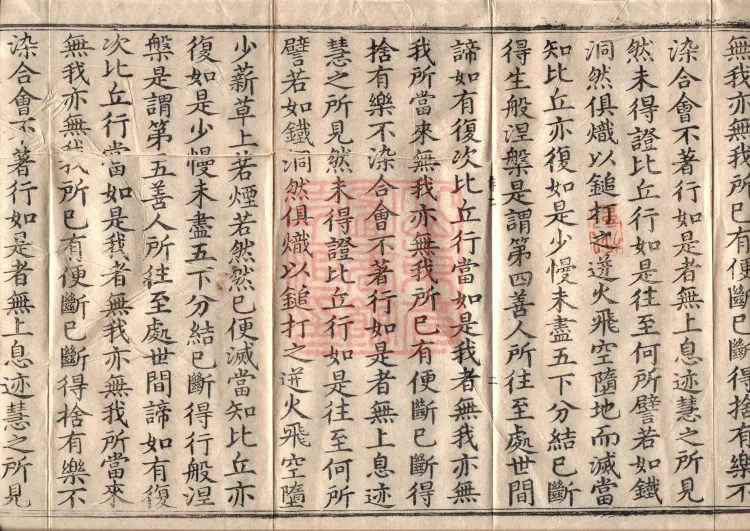 無我亦無我所已有便斷已斷得捨有樂不
染合會不著行如是者無上息迹慧之所見
然未得證比丘行如是往至何所譬若如鐵
洞然俱熾以鎚打之迸火飛空墮地而滅當
知比丘亦復如是少慢未盡五下分結已斷
得生般涅槃是謂第四善人所往至處世間
諦如有復次比丘行當如是我者無我亦無
我所當來無我亦無我所已有便斷已斷得
捨有樂不染合會不著行如是者無上息迹
慧之所見然未得證比丘行如是往至何所
譬若如鐵洞然俱熾以鎚打之迸火飛空墮
少薪草上若煙若然然已便滅當知比丘亦
復如是少慢未盡五下分結已斷得行般涅
槃是謂第五善人所往至處世間諦如有復
次比丘行當如是我者無我亦無我所當來
無我亦無我所已有便斷已斷得捨有樂不
染合會不著行如是者無上息迹慧之所見